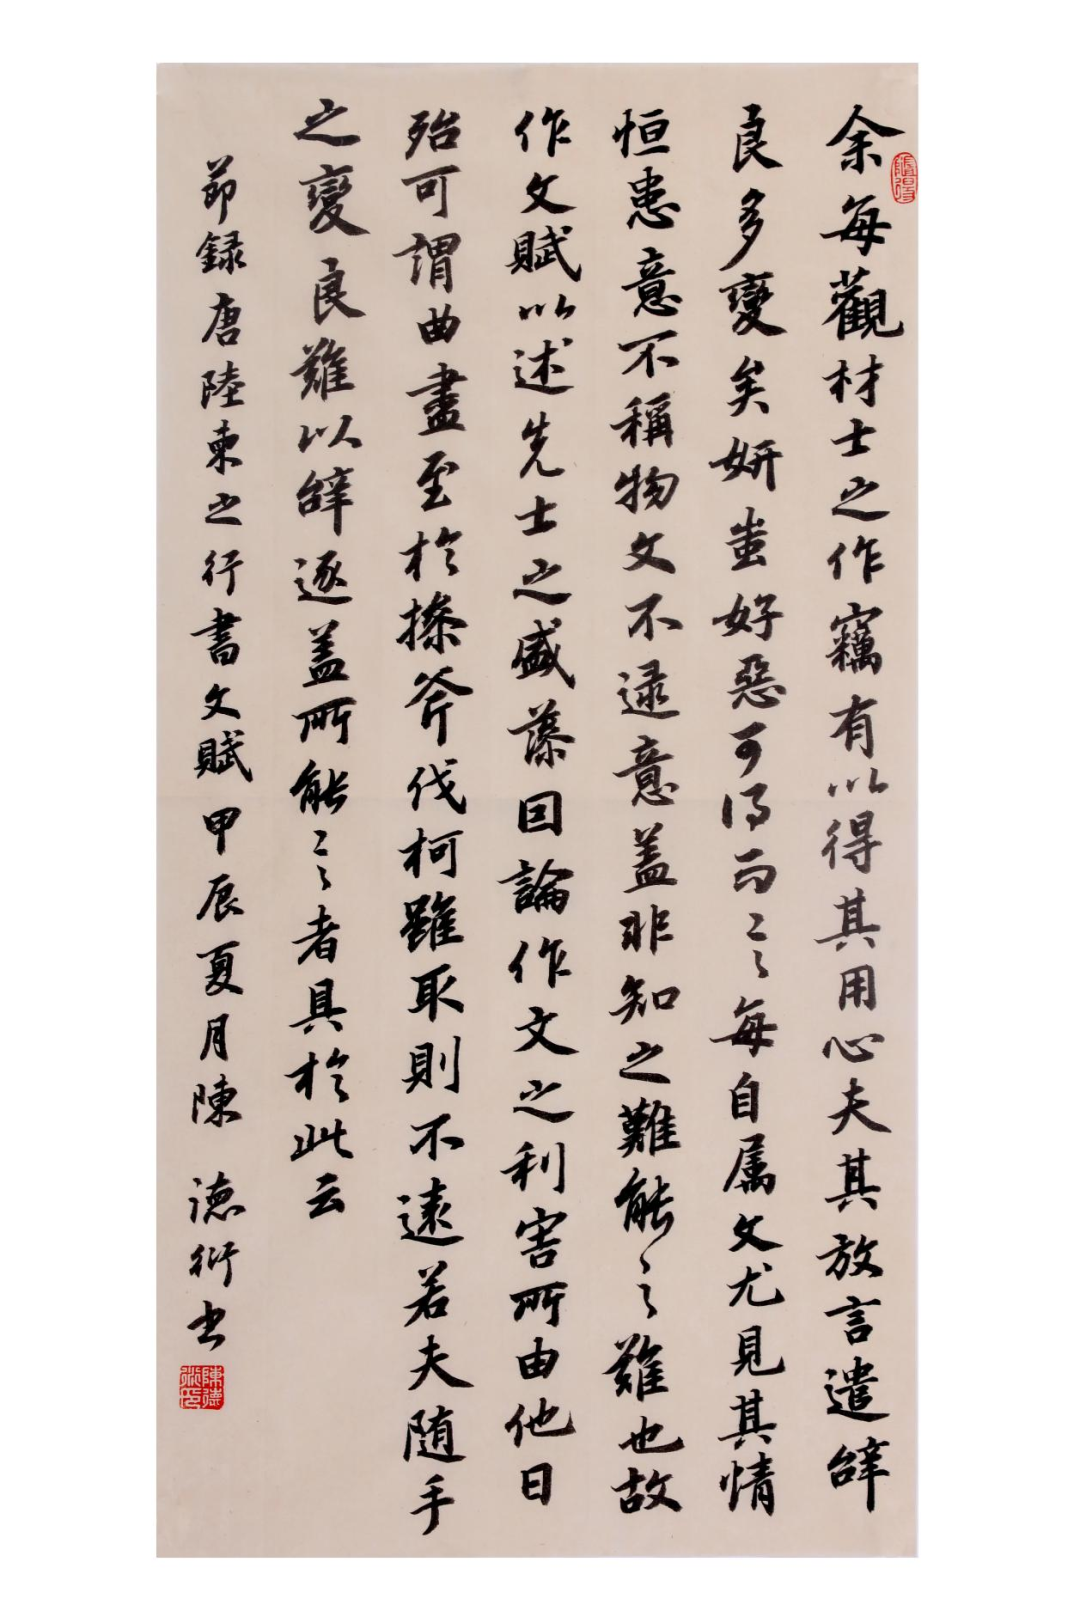 余每觀材士之作竊有以得其用心夫其放言遣辝
良多變矣妍蚩好惡可得而言每自属文尤見其情
恒患意不稱物文不逮意盖非知之難能之難也故
作文賦以述先士之盛藻因論作文之利害所由他日
殆可謂曲盡至於操斧伐柯雖取則不遠若夫随手
之變良難以辝逐盖所能言者具於此云
節録唐陸柬之行書文賦甲辰夏月陳德衍书
陳德衍印